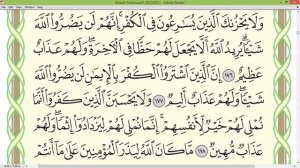 وَلَا يَحْزُنكَ الَّذِينَ يُسَارِعُونَ فِي الْكُفْرِ ۚ إِنَّهُمْ لَن يَضُرُّوا اللَّهَ
شَيْئًا ۗ يُرِيدُ اللَّهُ أَلَّا يَجْعَلَ لَهُمْ حَظًّا فِي الْآخِرَةِ ۖ وَلَهُمْ عَذَابٌ
عَظِيمٌ ١٧٦ إِنَّ الَّذِينَ اشْتَرَوُا الْكُفْرَ بِالْإِيمَانِ لَن يَضُرُّوا اللَّهَ
شَيْئًا وَلَهُمْ عَذَابٌ أَلِيمٌ ١٧٧ وَلَا يَحْسَبَنَّ الَّذِينَ كَفَرُوا أَنَّمَا
نُمْلِي لَهُمْ خَيْرٌ لِّأَنفُسِهِمْ ۚ إِنَّمَا نُمْلِي لَهُمْ لِيَزْدَادُوا إِثْمًا ۚ وَلَهُمْ
عَذَابٌ مُّهِينٌ ١٧٨ مَّا كَانَ اللَّهُ لِيَذَرَ الْمُؤْمِنِينَ عَلَىٰ مَا أَنتُمْ